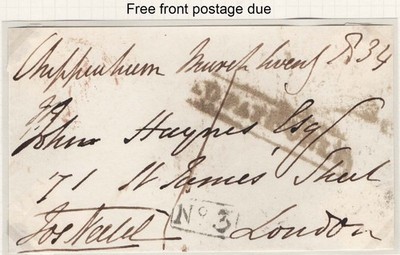 Free front postage due
Chippenham March twenty 8 34
John Haynes Esq
71 St James' Street
London
No 3